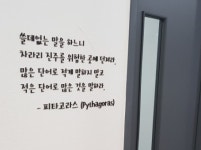 쓸데없는 말을 하느니
차라리 진주를 위험한 곳에 던져라.
많은 단어로 적게 말하지 말고
적은 단어로 많은 것을 말하라.
- 피타고라스 (Pythagoras)